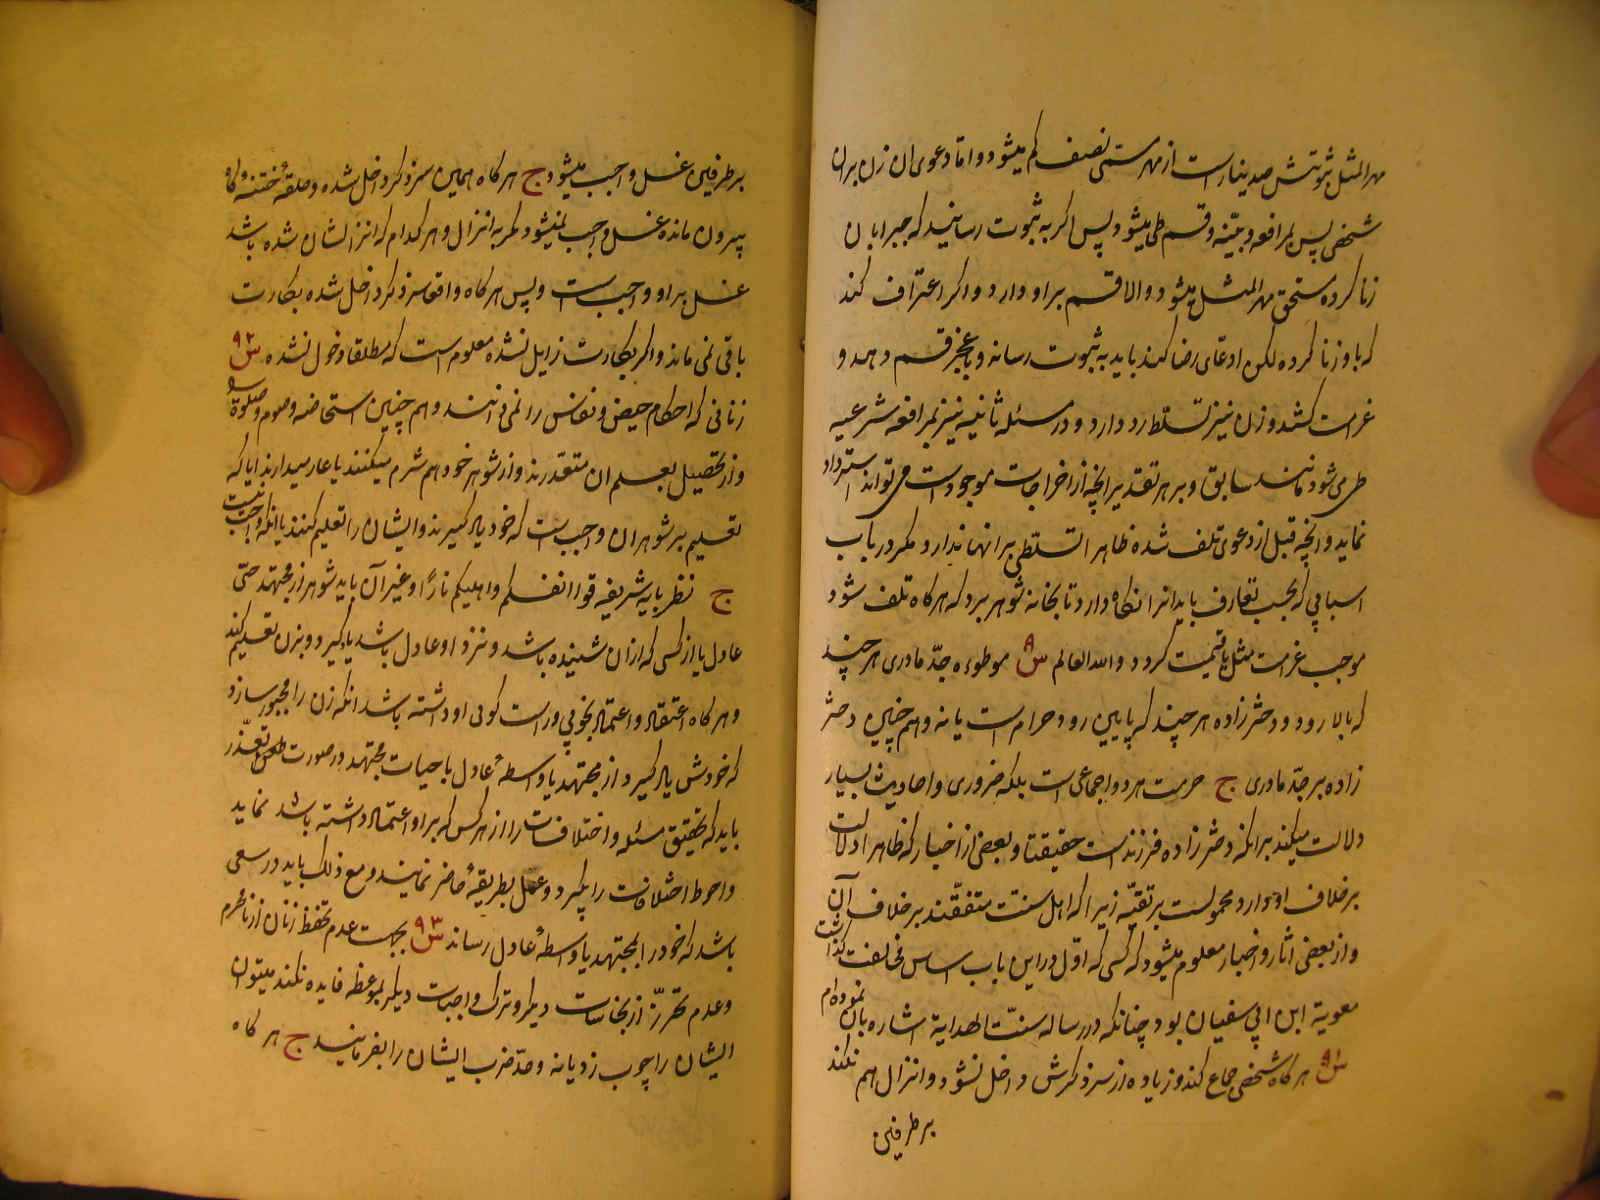 مهر المثل ثبوتش صد دینار است از مهر مسمّی نصف کم میشود و اما دعوی ان زن بران
شخص پس بمرافعه و بیّنه و قسم طی میشود پس اکر به ثبوت رسانید که جبرا بان
زنا کرده مستحق مهر المثل میشود و الا قسم بر او وارد و اکر اعتراف کند
که با و زنا کرده لکن ادعای رضا کند باید به ثبوت رساند و با عجز قسم دهد و
غرامت کشد و زن نیز تسلّط رد دارد و در مسئله ثانیه نیز بمرافعه شرعیه
طی می شود مانند سابق و بر هر تقدیر انچه از اخراجات موجود است می تواند استرداد
نماید و انچه قبل از دعوی تلف شده ظاهرا تسلّطی بر انها ندارد مکر در باب
اسبابی که بحسب تعارف باید انرا نکاه دارد تا بخانه شوهر برد که هر کاه تلف شود
موجب غرامت مثل یا قیمت کردد و الله العالم س ۹ موطوءه جدّ مادری هر چند
که بالا رود و دختر زاده هر چند که پایین رود حرام است یا نه و هم چنین دختر
زاده بر جدّ مادری ج حرمت هر دو اجماعی است بلکه ضروری و احادیث بسیار
دلالت میکند بر انکه دختر زاده فرزند است حقیقتا و بعضی از اخبار که ظاهرا دلالت
بر خلاف او دارد محمولست بر تقیّه زیرا که اهل سنت متفقند بر خلاف آن
و از بعضی اثار و اخبار معلوم میشود که کسی که اوّل در این باب اساس مخالفت کذاشت
معویة ابن ابی سفیان بود چنانکه در رساله سنّت الهدایة اشاره بان نموده ام
س ۹۱ هر کاه شخصی جماع کند و زیاده از سر ذکرش داخل نشود و انزال هم نکند
بر طرفین
بر طرفین غسل واجب میشود ج هر کاه همین سر ذکر داخل شده و حلقهٔ ختنه کاه
بیرون مانده غسل واجب نمیشود مکر به انزال و هر کدام که انزالشان شده باشد
غسل بر او واجب است و پس هر کاه واقعا سر ذکر داخل شده بکارت
باقی نمی ماند و اکر بکارت زایل نشده معلوم است که مطلقا دخول نشده س ۹۲
زنانی که احکام حیض و نفاس را نمی دانند و هم چنین استحاضه و صوم و صلوة
و از تحصیل بعلم ان متعذّرند و از شوهر خود هم شرم میکنند یا عار میدارند ایا که
تعلیم بر شوهران واجب است که خود یاد کیرند و ایشان را تعلیم کنند یا انکه واجب نیست
ج نظر بایه شریفه قوا انفسکم و اهلیکم نارًا و غیر آن باید شوهر از مجتهد حیّ
عادل یا از کسی که از ان شنیده باشد و نزد او عادل باشد یاد کیرد و بزن تعلیم کند
و هر کاه اعتقاد و اعتماد بخوبی و راست کوئی او داشته باشد انکه زن را مجبور سازد
که خودش یاد کیرد از مجتهد یا واسطهٔ عادل با حیات مجتهد و در صورت تعذّر
باید که تحقیق مسئله و اختلافات را از هر کس که بر او اعتماد داشته باشد نماید
و احوط اختلافات را بکیرد و عمل بطریقهٔ حاضر نمایند و مع ذلک باید در سعی
باشد که خود را بمجتهد یا واسطهٔ عادل رساند س ۹۳ بجهت عدم تحفظ زنان از نامحرم
و عدم تحرّز از نجاسات دیکر و ترک واجبات دیکر بموعظه فایده نکند میتوان
ایشان را چوب زد یا نه و حدّ ضرب ایشان را بفرمائید ج هر کاه